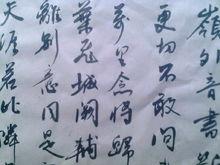 嶺外音書
更切不敢問
萬里念將歸
葉飛城闕輔
離別意同是
天涯若比鄰